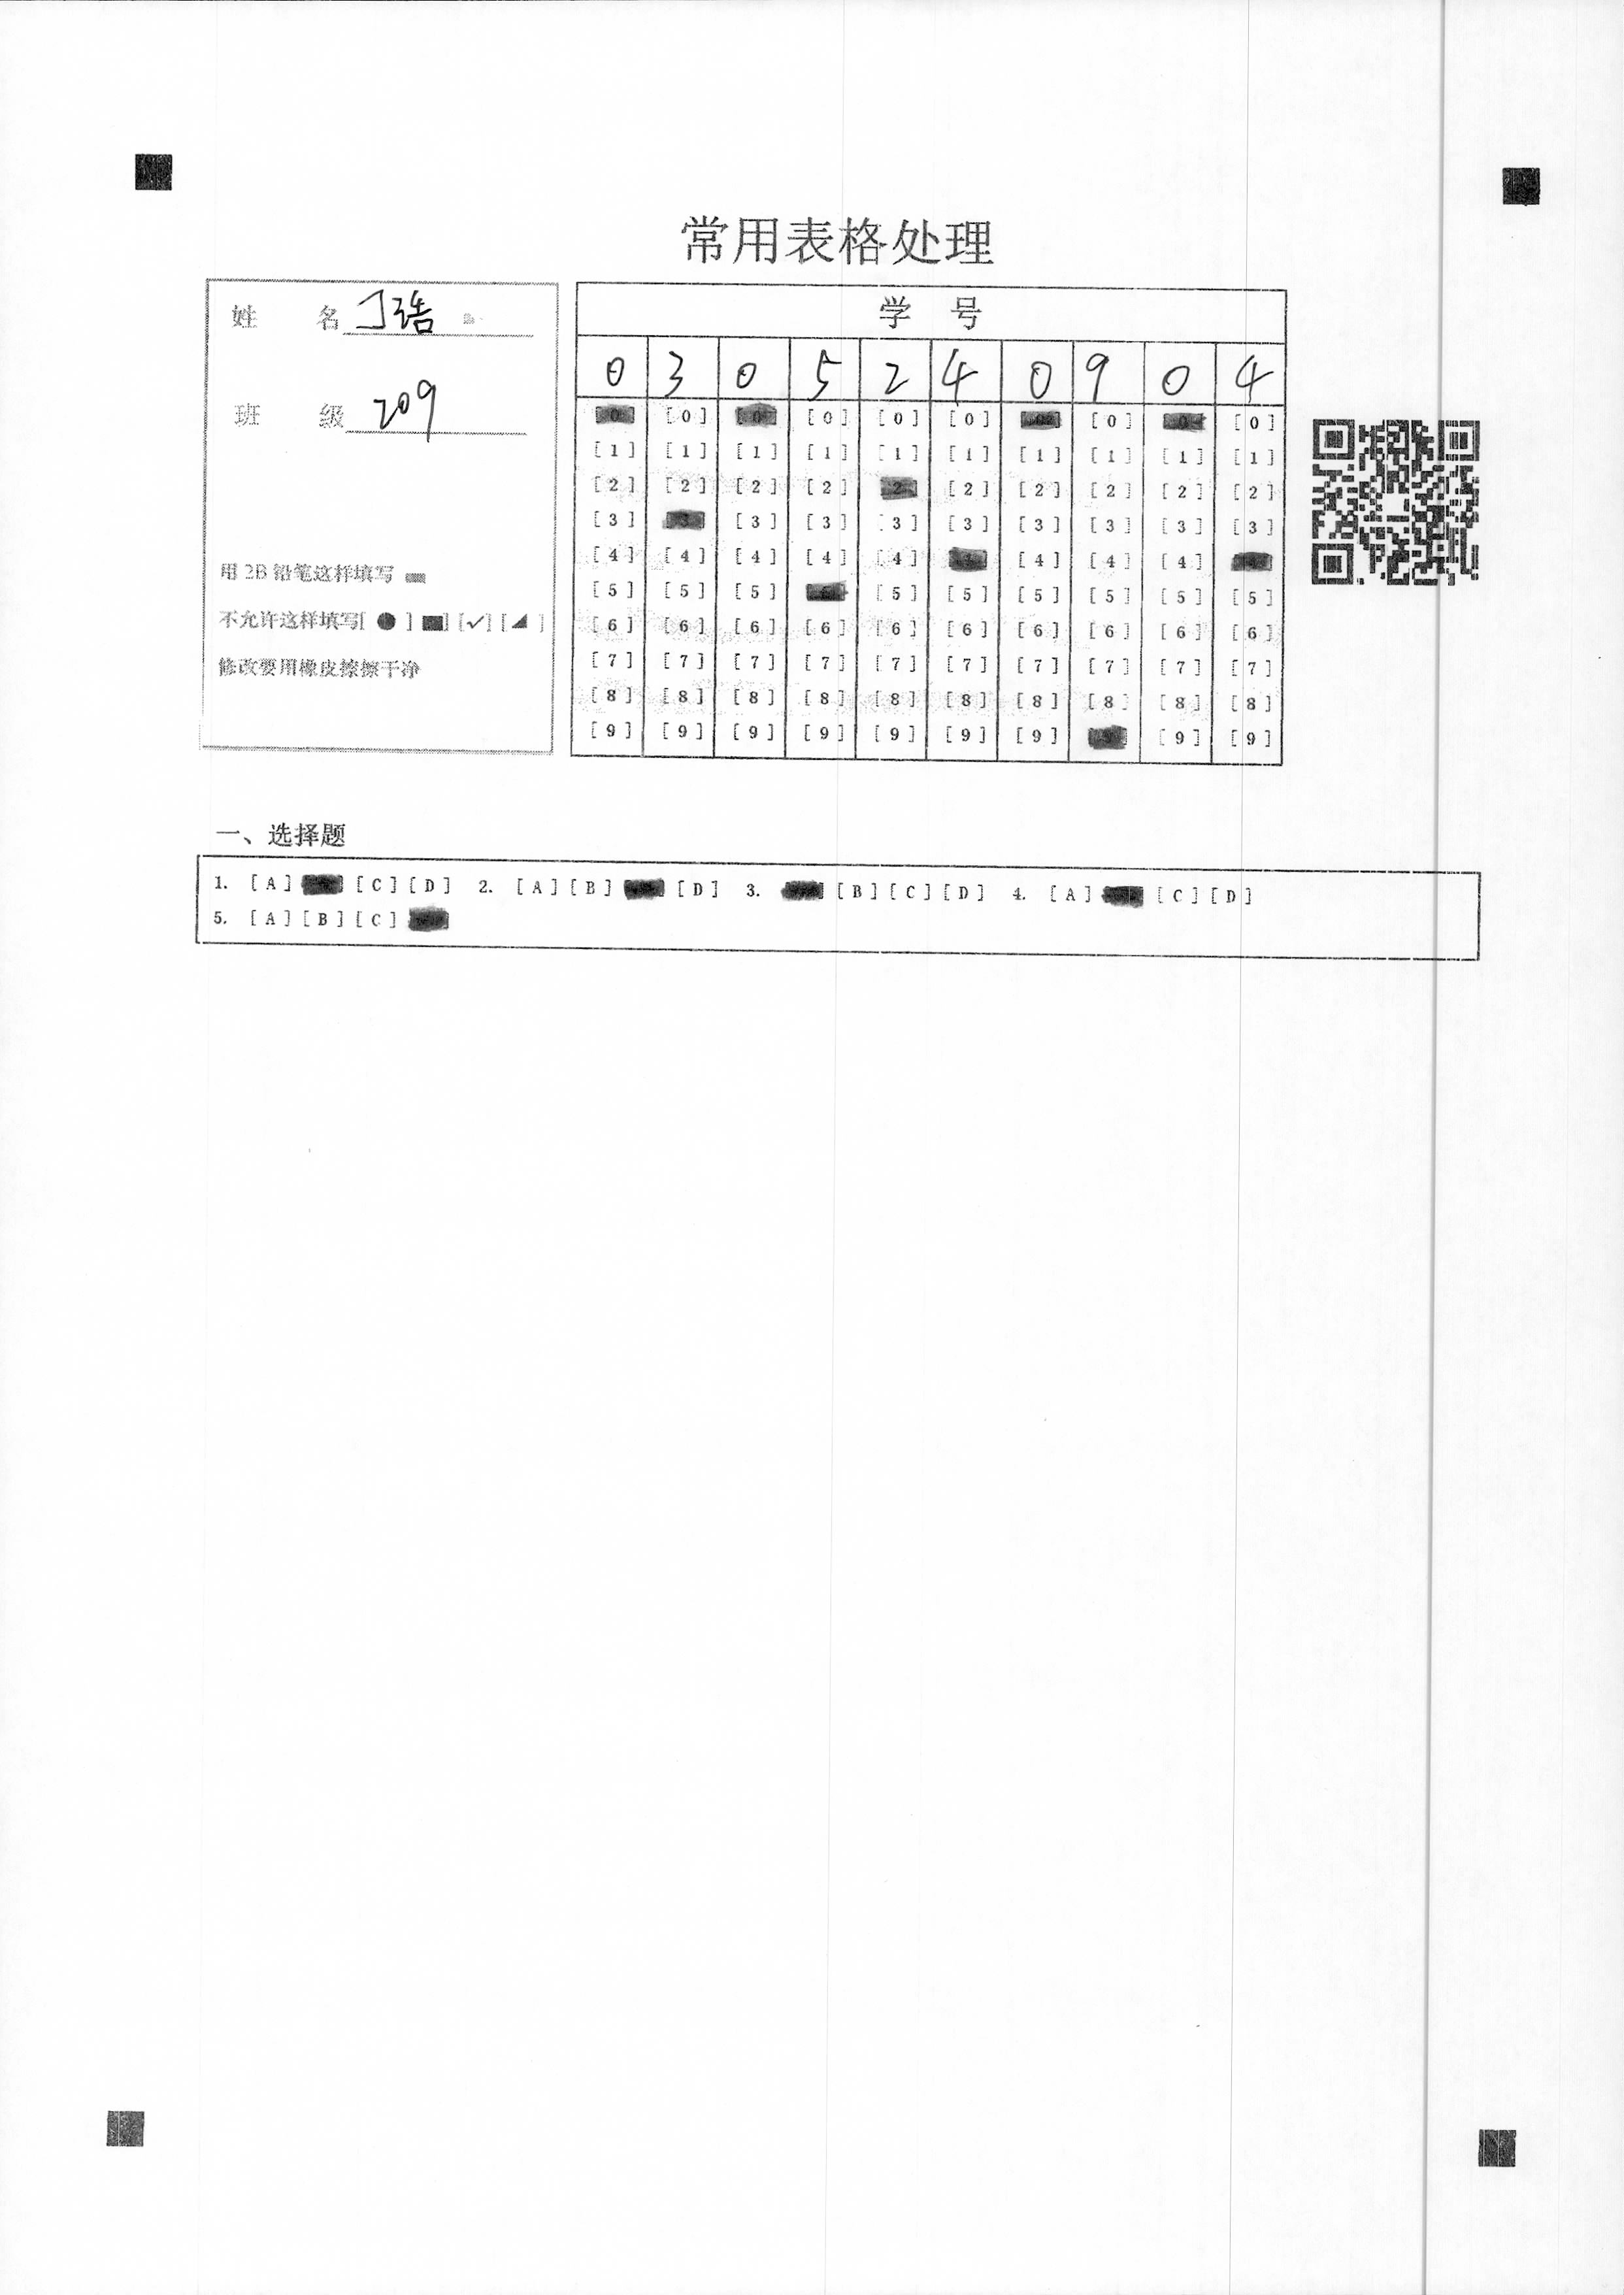 常用表格处理
姓 名 丁浩
班 级 209
用 2B 铅笔这样填写
不允许这样填写[ ● ] [■] [✓] [◢ ]
修改要用橡皮擦擦干净
学 号
0 3 0 5 2 4 0 9 0 4
[0] [0] [0] [0] [0] [0] [0]
[1] [1] [1] [1] [1] [1] [1] [1] [1] [1]
[2] [2] [2] [2] [2] [2] [2] [2] [2] [2]
[3] [3] [3] [3] [3] [3] [3] [3] [3]
[4] [4] [4] [4] [4] [4] [4] [4]
[5] [5] [5] [5] [5] [5] [5] [5] [5]
[6] [6] [6] [6] [6] [6] [6] [6] [6] [6]
[7] [7] [7] [7] [7] [7] [7] [7] [7] [7]
[8] [8] [8] [8] [8] [8] [8] [8] [8] [8]
[9] [9] [9] [9] [9] [9] [9] [9] [9]
一、选择题
1. [A] [C] [D] 2. [A] [B] [D] 3. [B] [C] [D] 4. [A] [C] [D]
5. [A] [B] [C]